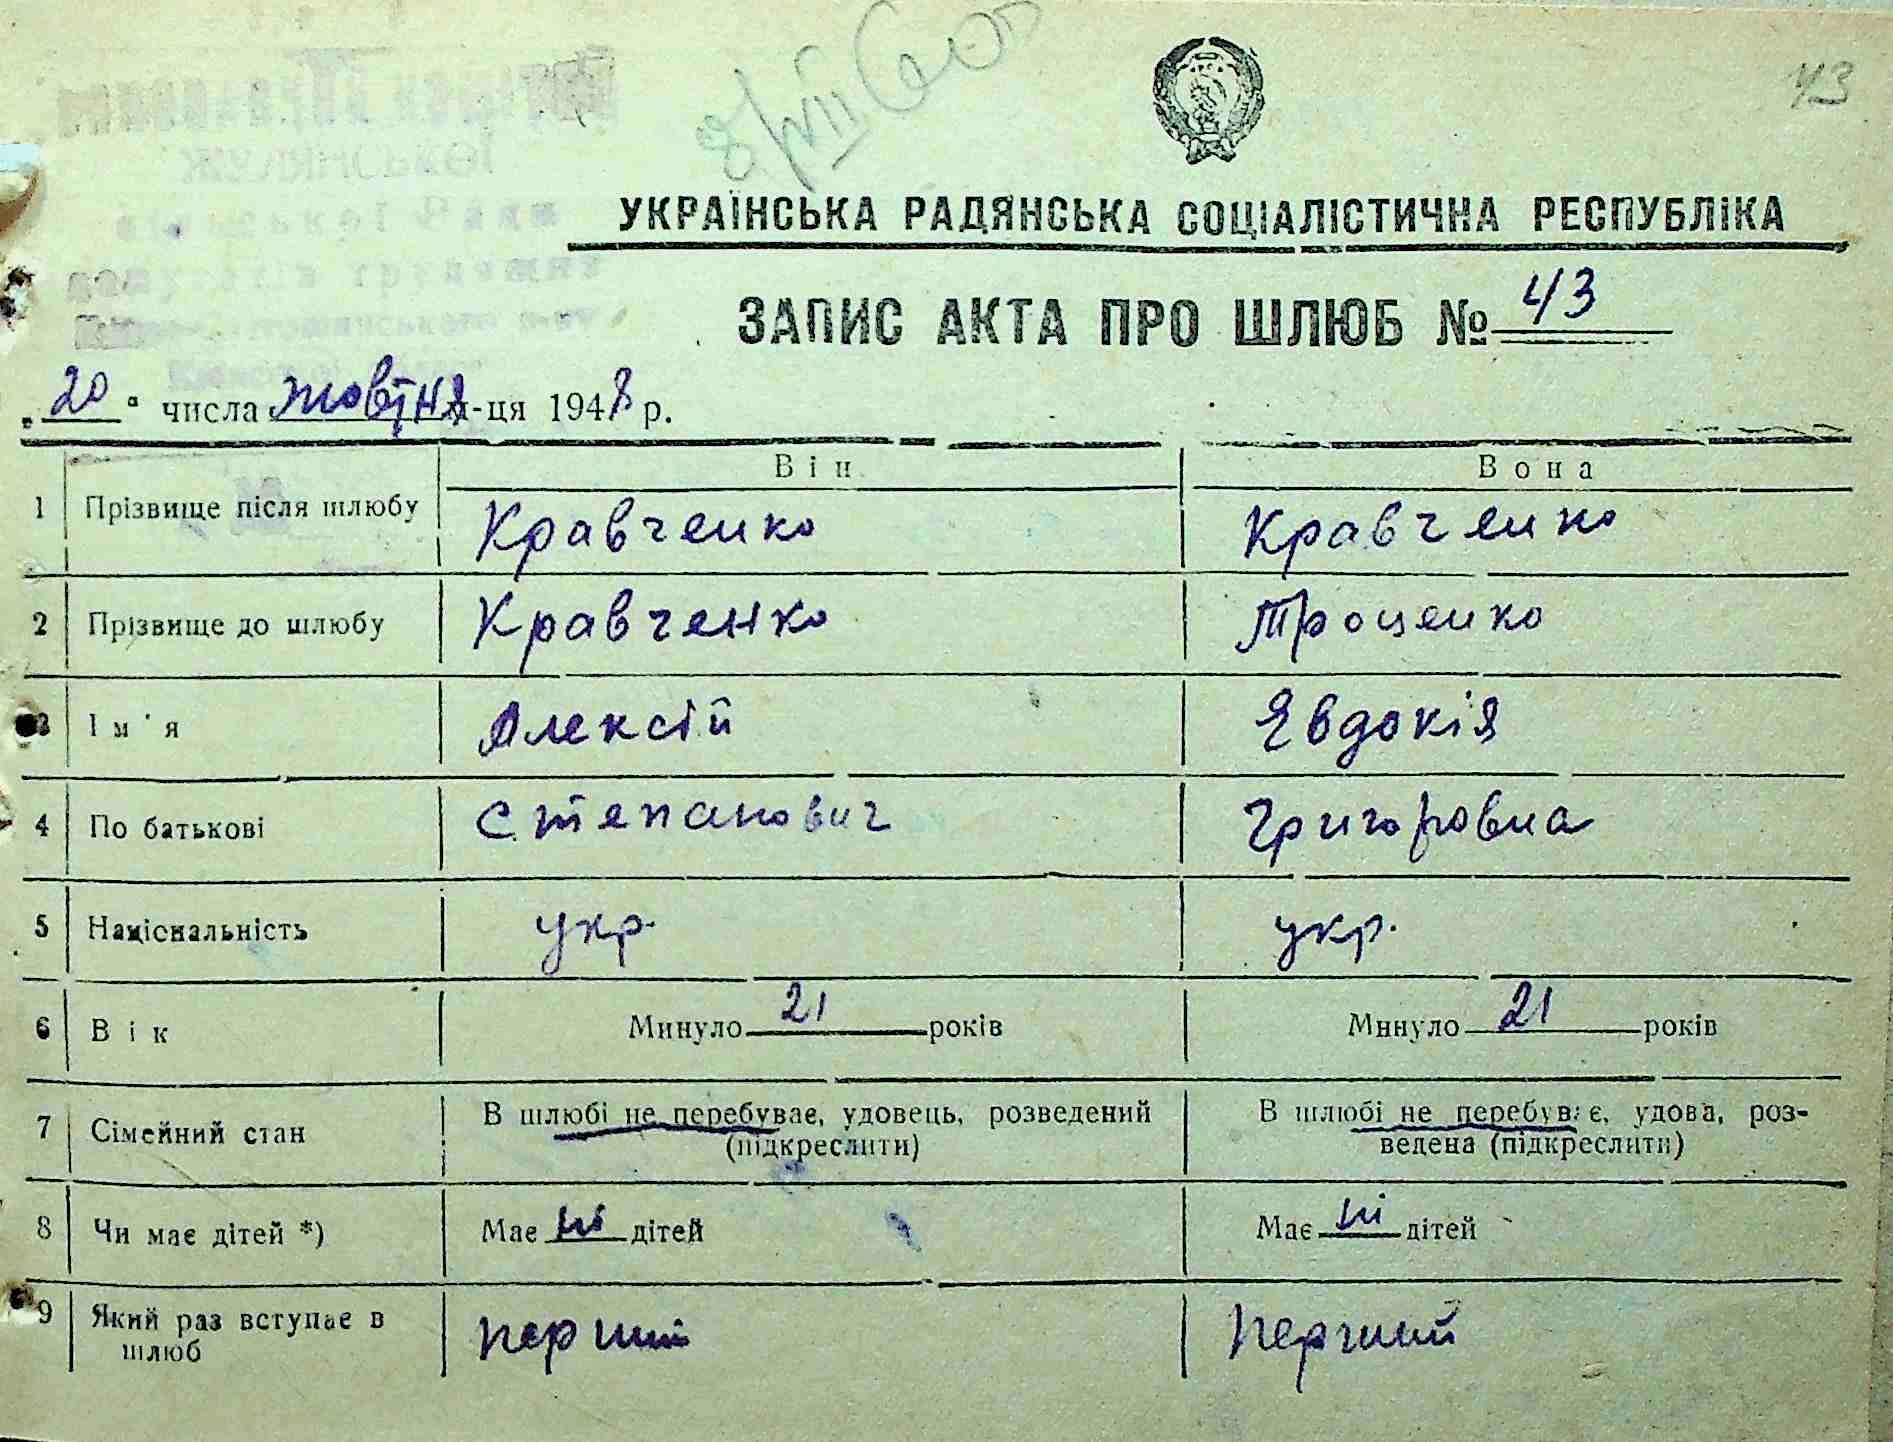 43
ЖУЛЯНСЬКОЇ
УКРАЇНСЬКА РАДЯНСЬКА СОЦІАЛІСТИЧНА РЕСПУБЛІКА
ЗАПИС АКТА ПРО ШЛЮБ № 43
„20“ числа жовтня м-ця 1948 р.
Він Вона
1 Прізвище після шлюбу Кравченко Кравченко
2 Прізвище до шлюбу Кравченко Троценко
3 Ім'я Алексій Явдокія
4 По батькові Степанович Григоровна
5 Національність укр. укр.
6 Вік Минуло 21 років Минуло 21 років
7 Сімейний стан В шлюбі не перебуває, удовець, розведений (підкреслити) В шлюбі не перебуває, удова, роз-
ведена (підкреслити)
8 Чи має дітей *) Має ні дітей Має ні дітей
9 Який раз вступає в шлюб перший перший